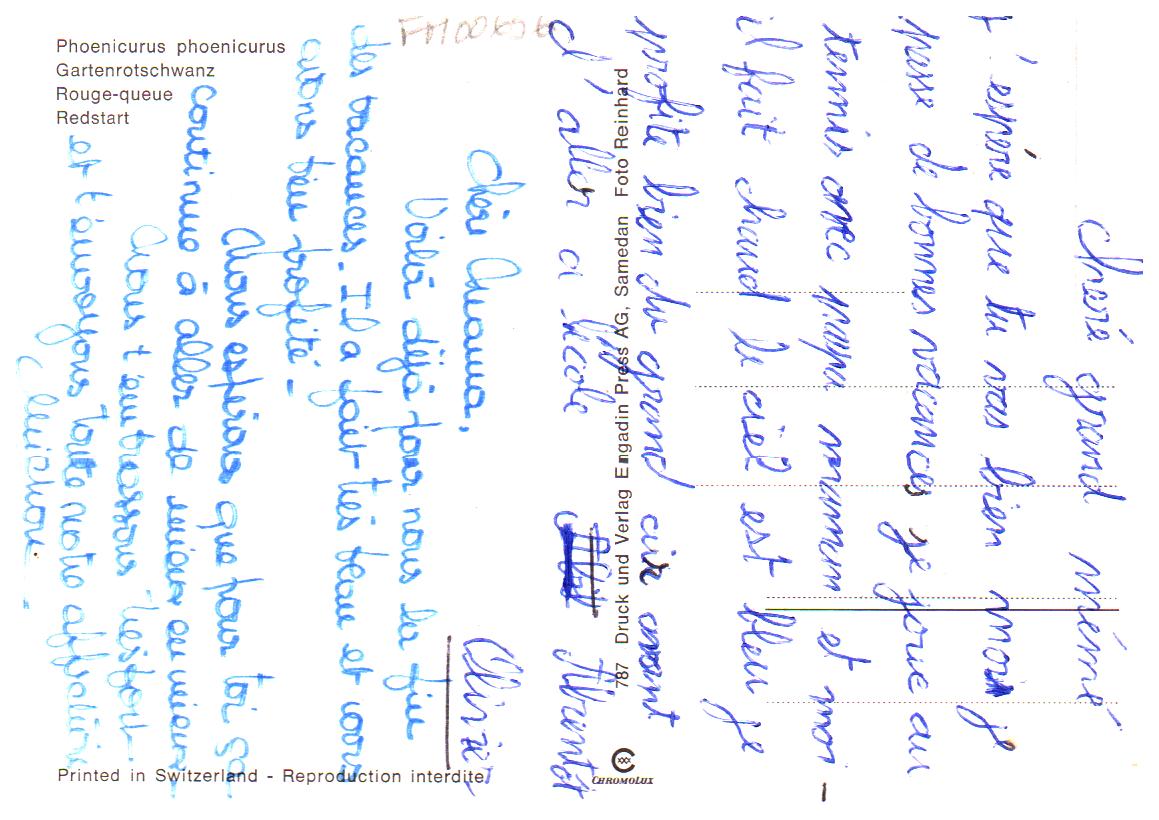 Phoenicurus phoenicurus
Gartenrotschwanz
Rouge-queue
Redstart
FM00656
chéré grand mérré
J'éspére que tu vas bien moi je
passe de bonnes vacances je joue au
tennis avec papa maman et moi
il fait chaud le ciel est bleu je
profite bien du grand air avant
d'aller a lécole Abientôt
Olivier
Chère Maman,
Voilà déjà pour nous la fin
des vacances. Il a fait très beau et nous
avons bien profité -
Nous espérons que pour toi ça
continue à aller de mieux en mieux.
Nous t'embrassons très fort
et t'envoyons toute notre affection
787 Druck und Verlag Engadin Press AG, Samedan Foto Reinhard
CHROMOLUX
Printed in Switzerland - Reproduction interdite